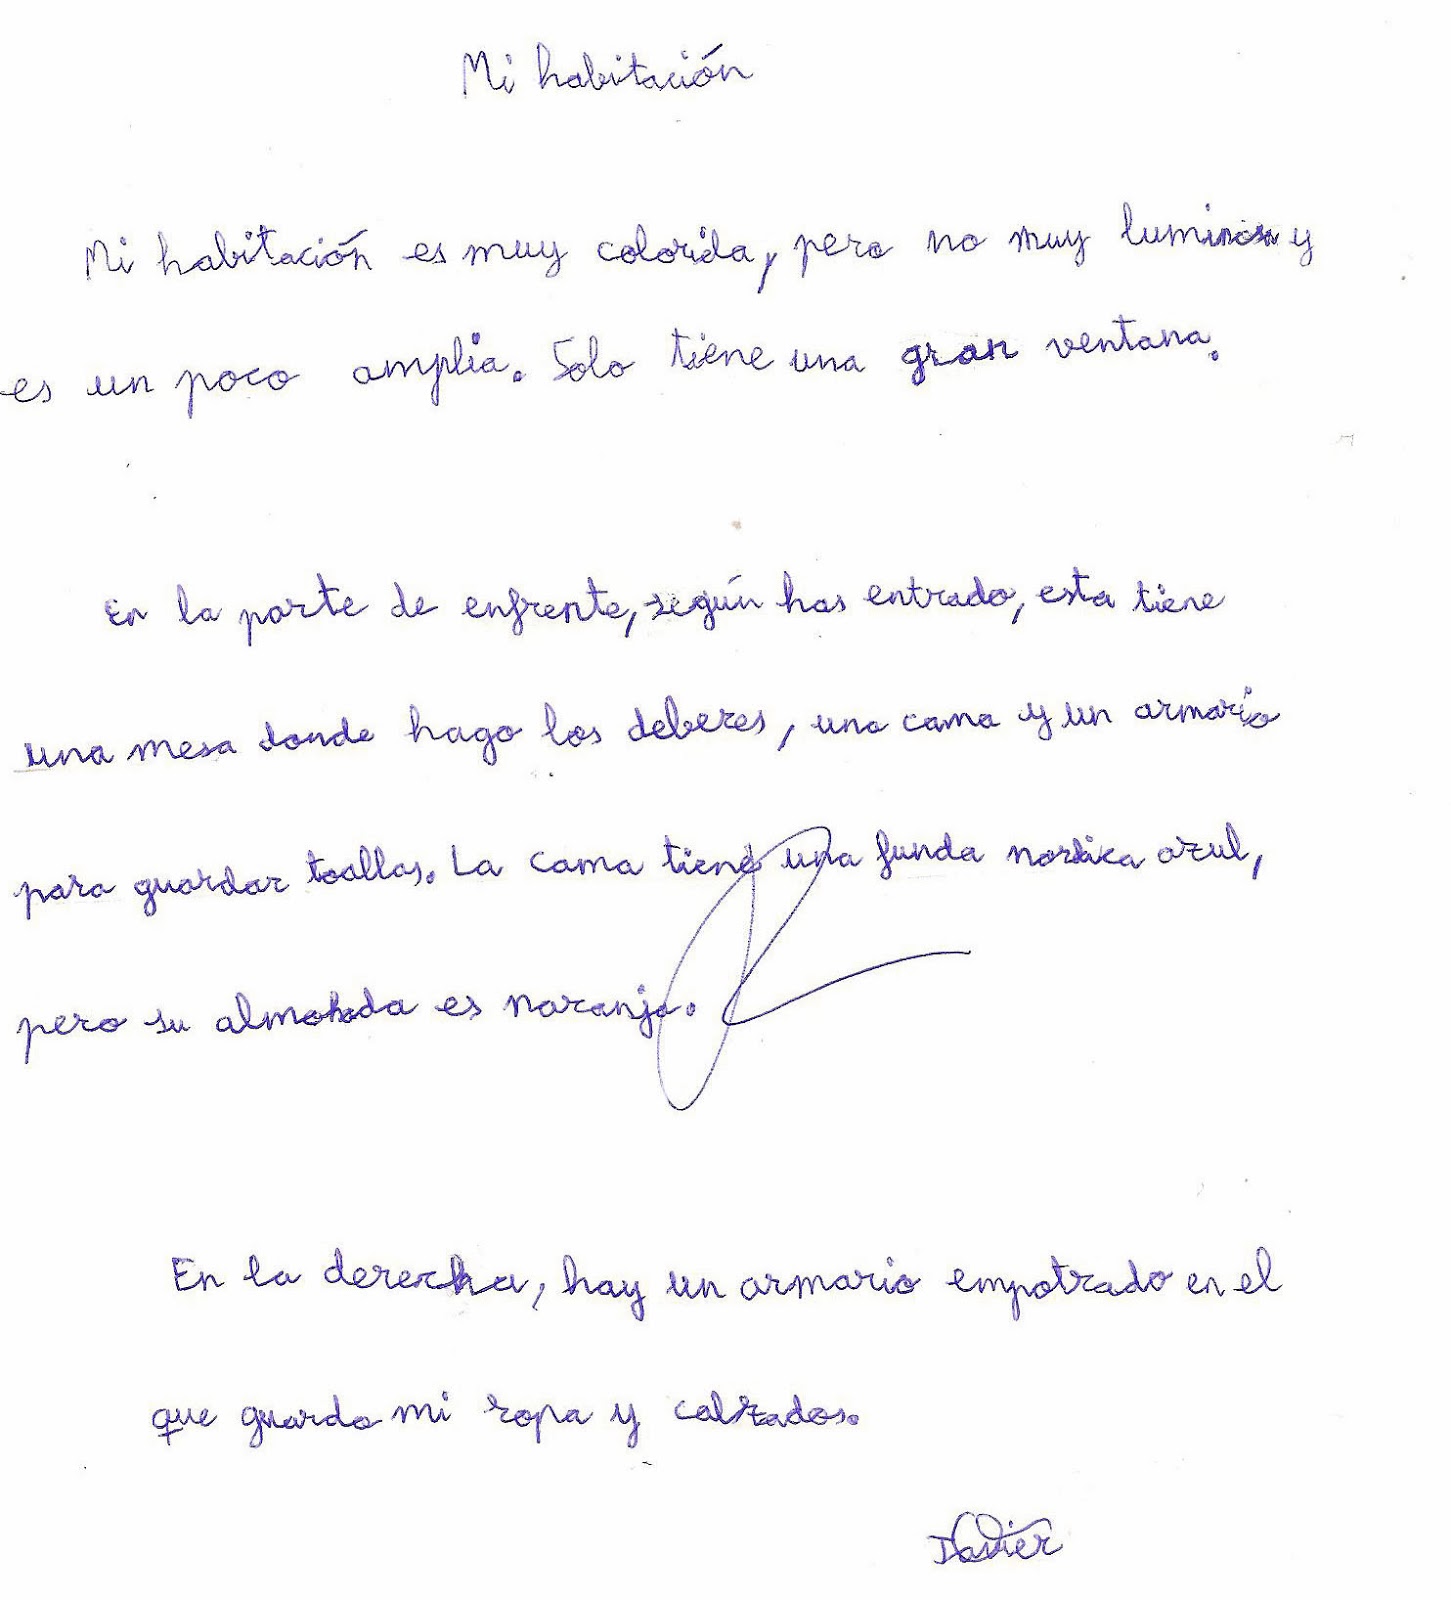 Mi habitación
Mi habitación es muy colorida, pero no muy luminosa y
es un poco amplia. Solo tiene una gran ventana.
En la parte de enfrente, según has entrado, esta tiene
una mesa donde hago los deberes, una cama y un armario
para guardar toallas. La cama tiene una funda nordica azul,
pero su almohada es naranja.
En la derecha, hay un armario empotrado en el
que guardo mi ropa y calzados.
Javier